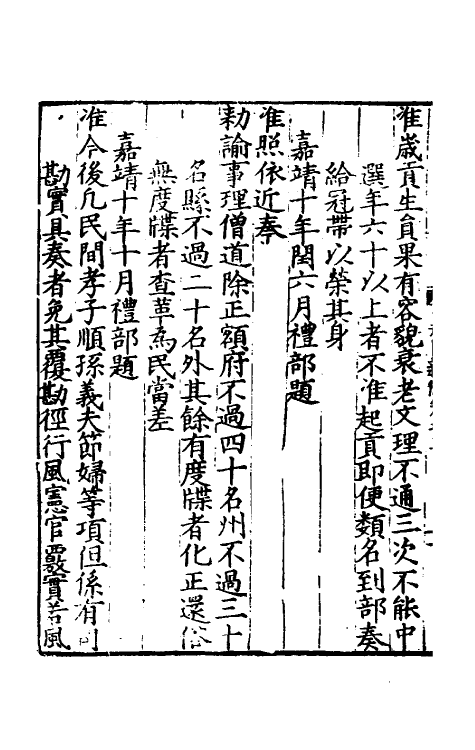 准歲貢生員果有容貌衰老文理不通三次不能中
選年六十以上者不准起貢即便類名到部奏
給冠帶以榮其身
嘉靖十年閏六月禮部題
准照依近奉
勑諭事理僧道除正額府不過四十名州不過三十
名縣不過二十名外其餘有度牒者化正還俗
無度牒者查革爲民當差
嘉靖十年十月禮部題
准今後凡民間孝子順孫義夫節婦等項但係有司
勘實具奏者免其覆勘徑行風憲官覈實若風